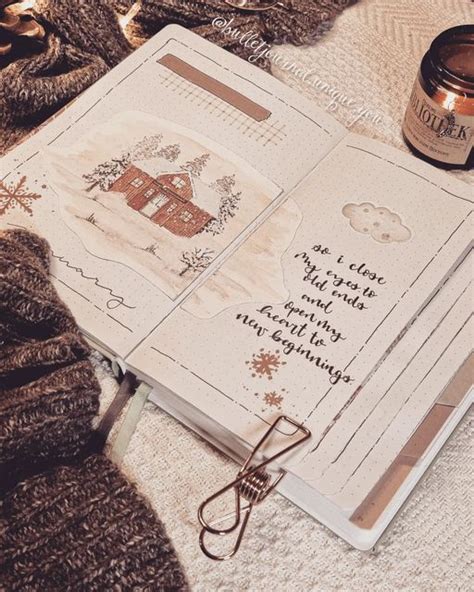 @bulletjournal.unique.you
so i close
my eyes to
old ends
and
open my
heart to
new beginnings
january